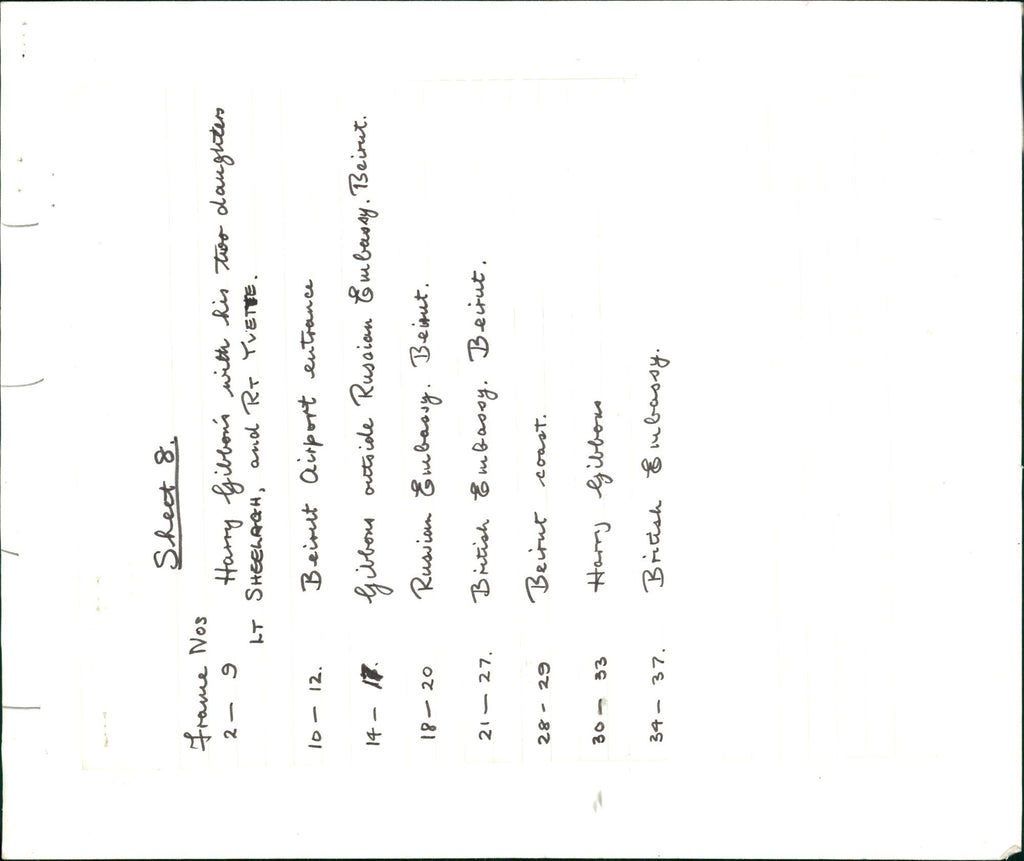 Sheet 8.
Frame Nos
2 - 9 Harry Gibbons with his two daughters
LT SHEELAGH, and RT YVETTE.
10 - 12. Beirut Airport entrance
14 - 17. Gibbons outside Russian Embassy. Beirut.
18 - 20 Russian Embassy. Beirut.
21 - 27. British Embassy. Beirut.
28 - 29 Beirut coast.
30 - 33 Harry Gibbons
34 - 37. British Embassy.